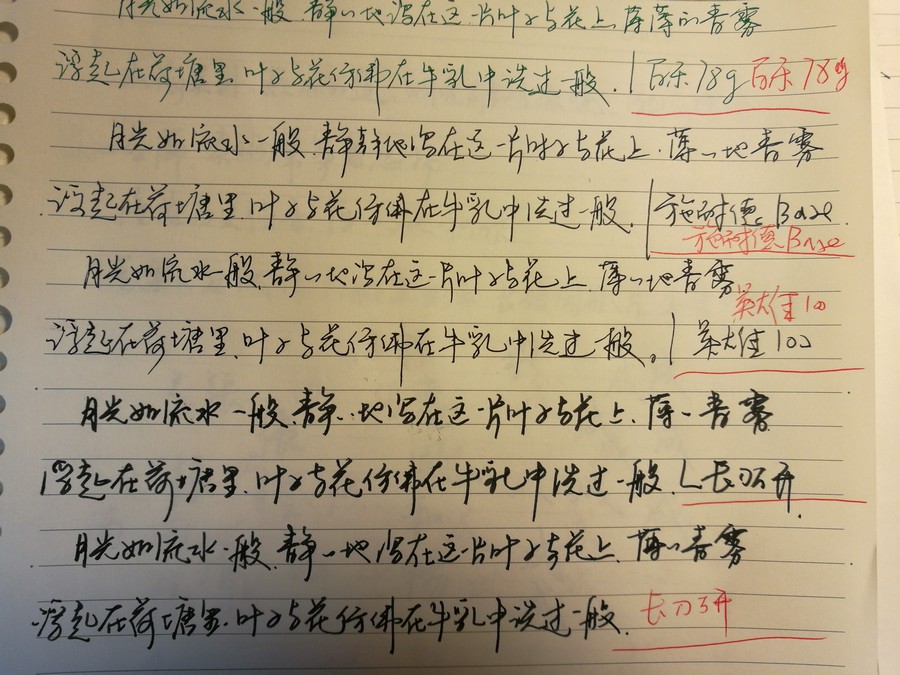 月光如流水一般,静静地泻在这一片叶子与花上,薄薄的青雾
浮起在荷塘里.叶子与花仿佛在牛乳中洗过一般.|百乐78g 百乐78g
月光如流水一般,静静地泻在这一片叶子与花上.薄々地青雾
浮起在荷塘里.叶子与花仿佛在牛乳中洗过一般.|施耐德Base.
施耐德Base
月光如流水一般,静々地泻在这一片叶子与花上,薄々地青雾
英雄100
浮起在荷塘里,叶子与花仿佛在牛乳中洗过一般。|英雄100
月光如流水一般,静々地泻在这一片叶子与花上,薄々青雾
浮起在荷塘里.叶子与花仿佛在牛乳中洗过一般.长刀开.
月光如流水一般,静々地泻在这一片叶子与花上,薄々青雾
浮起在荷塘里.叶子与花仿佛在牛乳中洗过一般. 长刀研